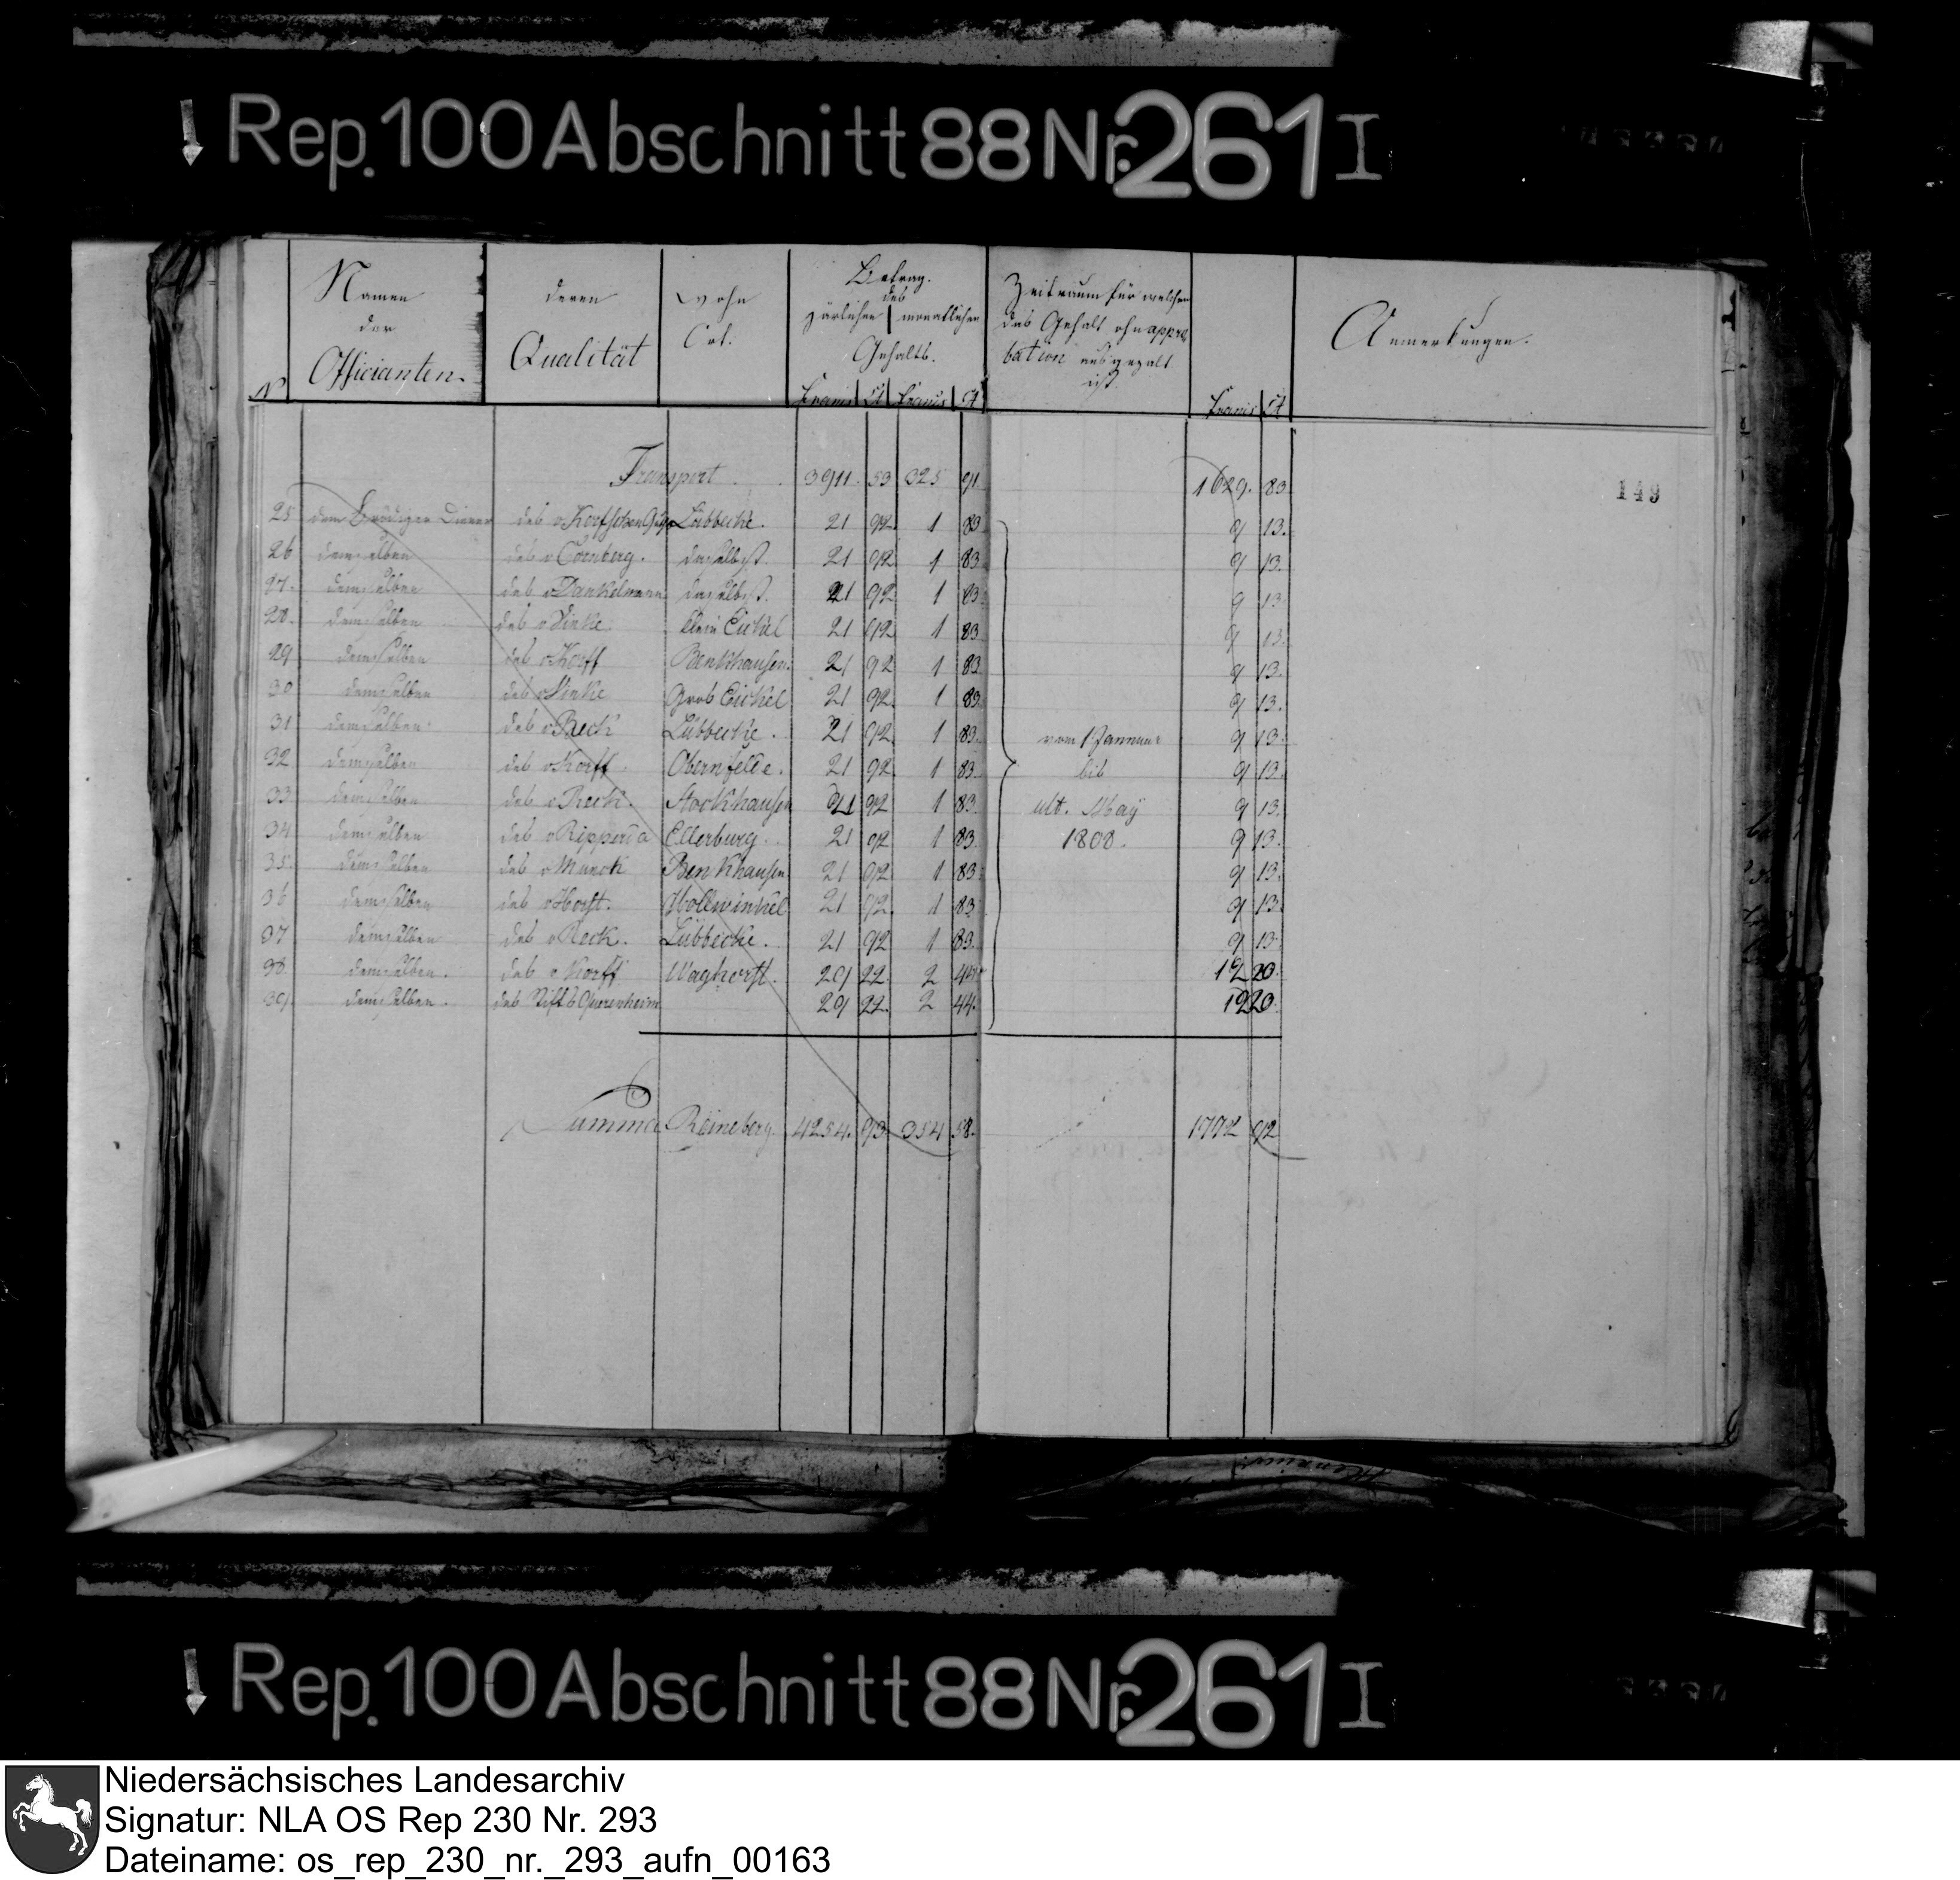 Rep. 100 Abschnitt 88 Nr. 261 I
No
Namen
der
Officianten.
deren
Qualität
Wohn
Ort.
Betrag.
des
järlichen monatlichen
Gehalts.
Francs Ct Francs Ct
Zeitraum für welchen
das Gehalt ohn appro
bation ausgezalt
ist.
Francs Ct
Anmerkungen.
149
Transport . . 3911. 53 325 91. 1629. 83
25 dem Diener des v Korfschen Lübbecke. 21 92. 1 83 9 13.
26 demselben des v Cornberg. daselbst. 21 92. 1 83 9 13.
27. demselben des v Dankelmann daselbst. 21 92 1 83. 9 13.
28. demselben des v Vinke klein Eickel 21 92. 1 83 9 13.
29 demselben des v Korff Benkhausen. 21 92 1 83. 9 13.
30 demselben des v Vinke Gros Eickel 21 92. 1 83. 9 13.
31 demselben. des v Reck Lübbecke. 21 92. 1 83. vom 1 Januar 9 13.
32 demselben des v Korff. Obernfelde. 21 92. 1 83. bis 9 13.
33 demselben des v Reck. Stockhausen 21 92 1 83. ult. May 9 13.
34 demselben des v Ripperda Ellerburg. 21 92 1 83. 1808. 9 13.
35. demselben des v Munch Benkhausen 21 92 1 83. 9 13.
36 demselben des v Horst. Hollwinkel 21 92. 1 83 9 13.
37 demselben des v Reck. Lübbecke. 21 92 1 83. 9 13.
38. demselben. des v Korff Waghorst. 29 22. 2 44. 12 20.
39. demselben. des Stifts Quernheim 29 22. 2 44. 12 20.
Summa Reineberg. 4254. 93 354 58. 1772 92
Rep. 100 Abschnitt 88 Nr. 261 I
Niedersächsisches Landesarchiv
Signatur: NLA OS Rep 230 Nr. 293
Dateiname: os_rep_230_nr._293_aufn_00163